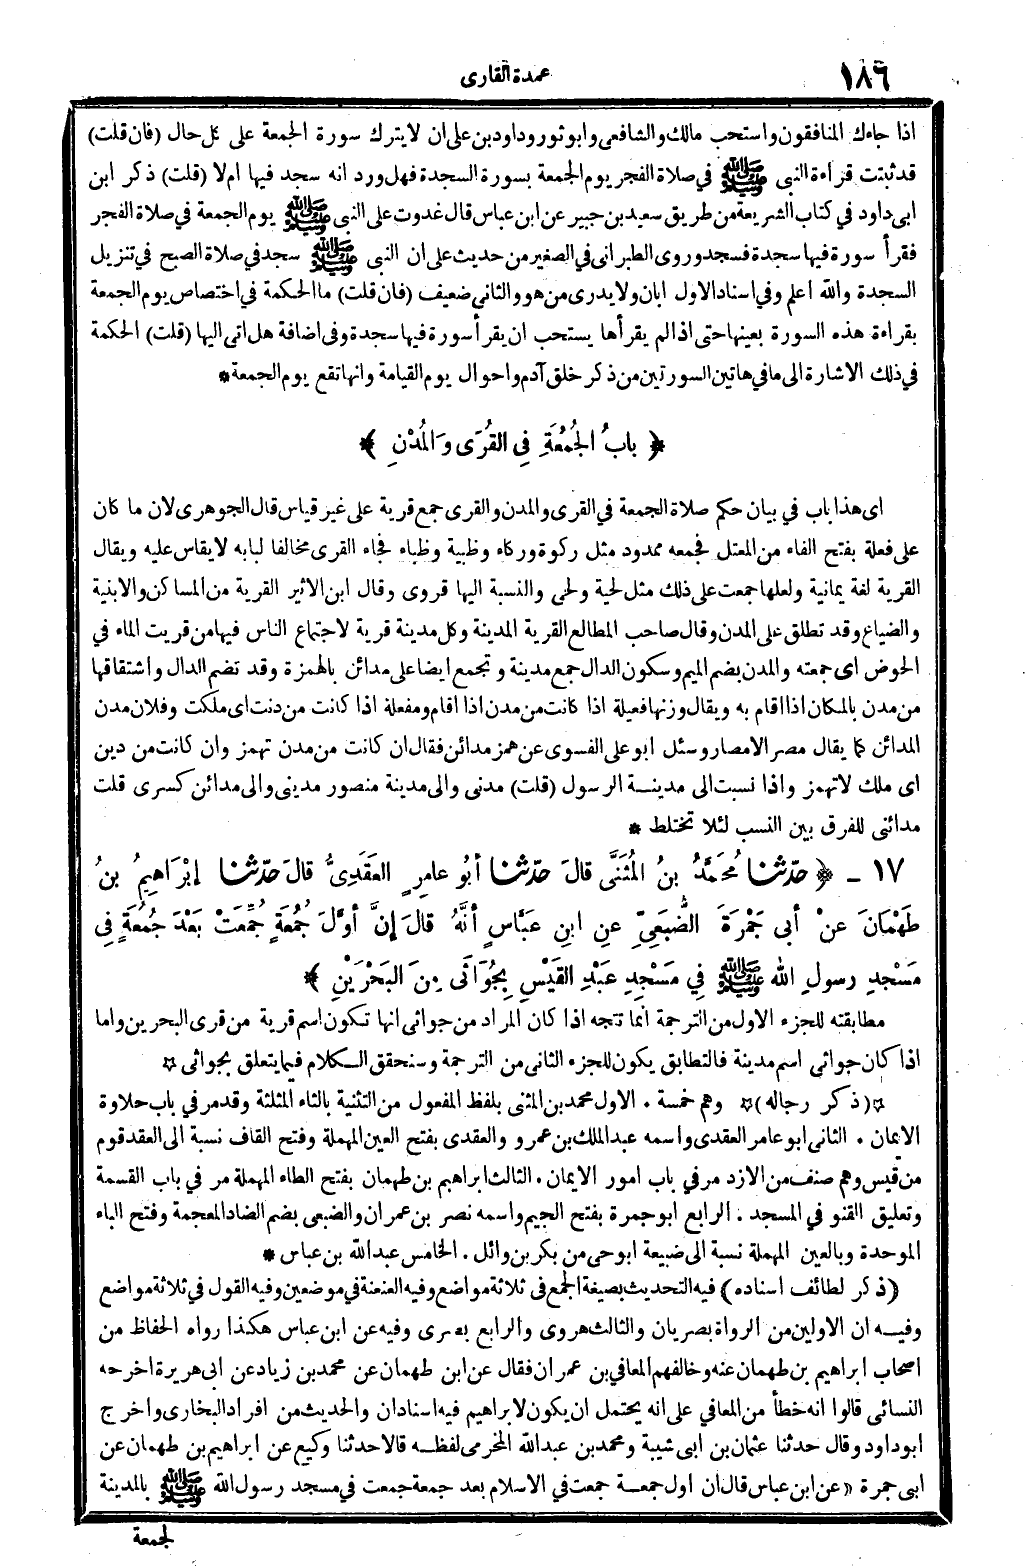 ١٨٦
عمدة القارى
اذا جاءك المنافقون واستحب مالك والشافعى وابو ثور وداود بن على ان لا يترك سورة الجمعة على كل حال (فان قلت)
قد ثبتت قراءة النبى ﷺ في صلاة الفجر يوم الجمعة بسورة السجدة فهل ورد انه سجد فيها ام لا (قلت) ذكر ابن
ابى داود في كتاب الشريعة من طريق سعيد بن جبير عن ابن عباس قال غدوت على النبى ﷺ يوم الجمعة في صلاة الفجر
فقرأ سورة فيها سجدة فسجد وروى الطبرانى في الصغير من حديث على ان النبى ﷺ سجد في صلاة الصبح في تنزيل
السجدة والله اعلم وفي اسناد الاول ابان ولا يدرى من هو والثانى ضعيف (فان قلت) ما الحكمة في اختصاص يوم الجمعة
بقراءة هذه السورة بعينها حتى اذا لم يقرأها يستحب ان يقرأ سورة فيها سجدة وفى اضافة هل اتى اليها (قلت) الحكمة
في ذلك الاشارة الى ما في هاتين السورتين من ذكر خلق آدم واحوال يوم القيامة وانها تقع يوم الجمعة *
﴿ بابُ الجُمُعَةِ فِي القُرَى وَالمُدْنِ ﴾
اى هذا باب في بيان حكم صلاة الجمعة في القرى والمدن والقرى جمع قرية على غير قياس قال الجوهرى لان ما كان
على فعلة بفتح الفاء من المعتل فجمعه ممدود مثل ركوة وركاء وظبية وظباء فجاء القرى مخالفا لبابه لا يقاس عليه ويقال
القرية لغة يمانية ولعلها جمعت على ذلك مثل لحية ولحى والنسبة اليها قروى وقال ابن الاثير القرية من المساكن والابنية
والضياع وقد تطلق على المدن وقال صاحب المطالع القرية المدينة وكل مدينة قرية لاجتماع الناس فيها من قريت الماء في
الحوض اى جمعته والمدن بضم الميم وسكون الدال جمع مدينة وتجمع ايضا على مدائن بالهمزة وقد تضم الدال واشتقاقها
من مدن بالمكان اذا اقام به ويقال وزنها فعيلة اذا كانت من مدن اذا اقام ومفعلة اذا كانت من دنت اى ملكت وفلان مدن
المدائن كما يقال مصر الامصار وسئل ابو على الفسوى عن همز مدائن فقال ان كانت من مدن تهمز وان كانت من دين
اى ملك لا تهمز واذا نسبت الى مدينة الرسول (قلت) مدنى والى مدينة منصور مدينى والى مدائن كسرى قلت
مدائنى للفرق بين النسب لئلا تختلط *
١٧ ـ ﴿ حدّثنا مُحَمَّدُ بنُ المُثَنَّى قالَ حدّثنا أبُو عامِرٍ العَقَدِىُّ قالَ حدّثنا إبْرَاهِيمُ بنُ
طَهْمَانَ عنْ أبى جَمْرَةَ الضُّبَعِىِّ عنِ ابنِ عَبَّاسٍ أنَّهُ قالَ إنَّ أوَّلَ جُمُعَةٍ جُمِّعَتْ بَعْدَ جُمُعَةٍ فِي
مَسْجِدِ رسولِ الله ﷺ فِي مَسْجِدِ عَبْدِ القَيْسِ بِجُوَاثَى مِنَ البَحْرَيْنِ ﴾
مطابقته للجزء الاول من الترجمة انما تتجه اذا كان المراد من جواثى انها تكون اسم قرية من قرى البحرين واما
اذا كان جواثى اسم مدينة فالتطابق يكون للجزء الثانى من الترجمة وسنحقق الكلام فيما يتعلق بجواثى ☆
☆(ذكر رجاله)☆ وهم خمسة . الاول محمد بن المثنى بلفظ المفعول من التثنية بالثاء المثلثة وقد مر في باب حلاوة
الايمان . الثانى ابو عامر العقدى واسمه عبد الملك بن عمرو والعقدى بفتح العين المهملة وفتح القاف نسبة الى العقد قوم
من قيس وهم صنف من الازد مر في باب امور الايمان . الثالث ابراهيم بن طهمان بفتح الطاء المهملة مر في باب القسمة
وتعليق القنو في المسجد . الرابع ابو جمرة بفتح الجيم واسمه نصر بن عمران والضبعى بضم الضاد المعجمة وفتح الباء
الموحدة وبالعين المهملة نسبة الى ضبيعة ابو حى من بكر بن وائل . الخامس عبد الله بن عباس *
(ذكر لطائف اسناده) فيه التحديث بصيغة الجمع فى ثلاثة مواضع وفيه العنعنة في موضعين وفيه القول في ثلاثة مواضع
وفيه ان الاولين من الرواة بصريان والثالث هروى والرابع بصرى وفيه عن ابن عباس هكذا رواه الحفاظ من
اصحاب ابراهيم بن طهمان عنه وخالفهم المعافي بن عمران فقال عن ابن طهمان عن محمد بن زياد عن ابى هريرة اخرجه
النسائى قالوا انه خطأ من المعافي على انه يحتمل ان يكون لابراهيم فيه اسنادان والحديث من افراد البخارى واخرج
ابو داود وقال حدثنا عثمان بن ابى شيبة ومحمد بن عبد الله المخرمى لفظه قالا حدثنا وكيع عن ابراهيم بن طهمان عن
ابى جمرة «عن ابن عباس قال ان اول جمعة جمعت في الاسلام بعد جمعة جمعت في مسجد رسول الله ﷺ بالمدينة
لجمعة